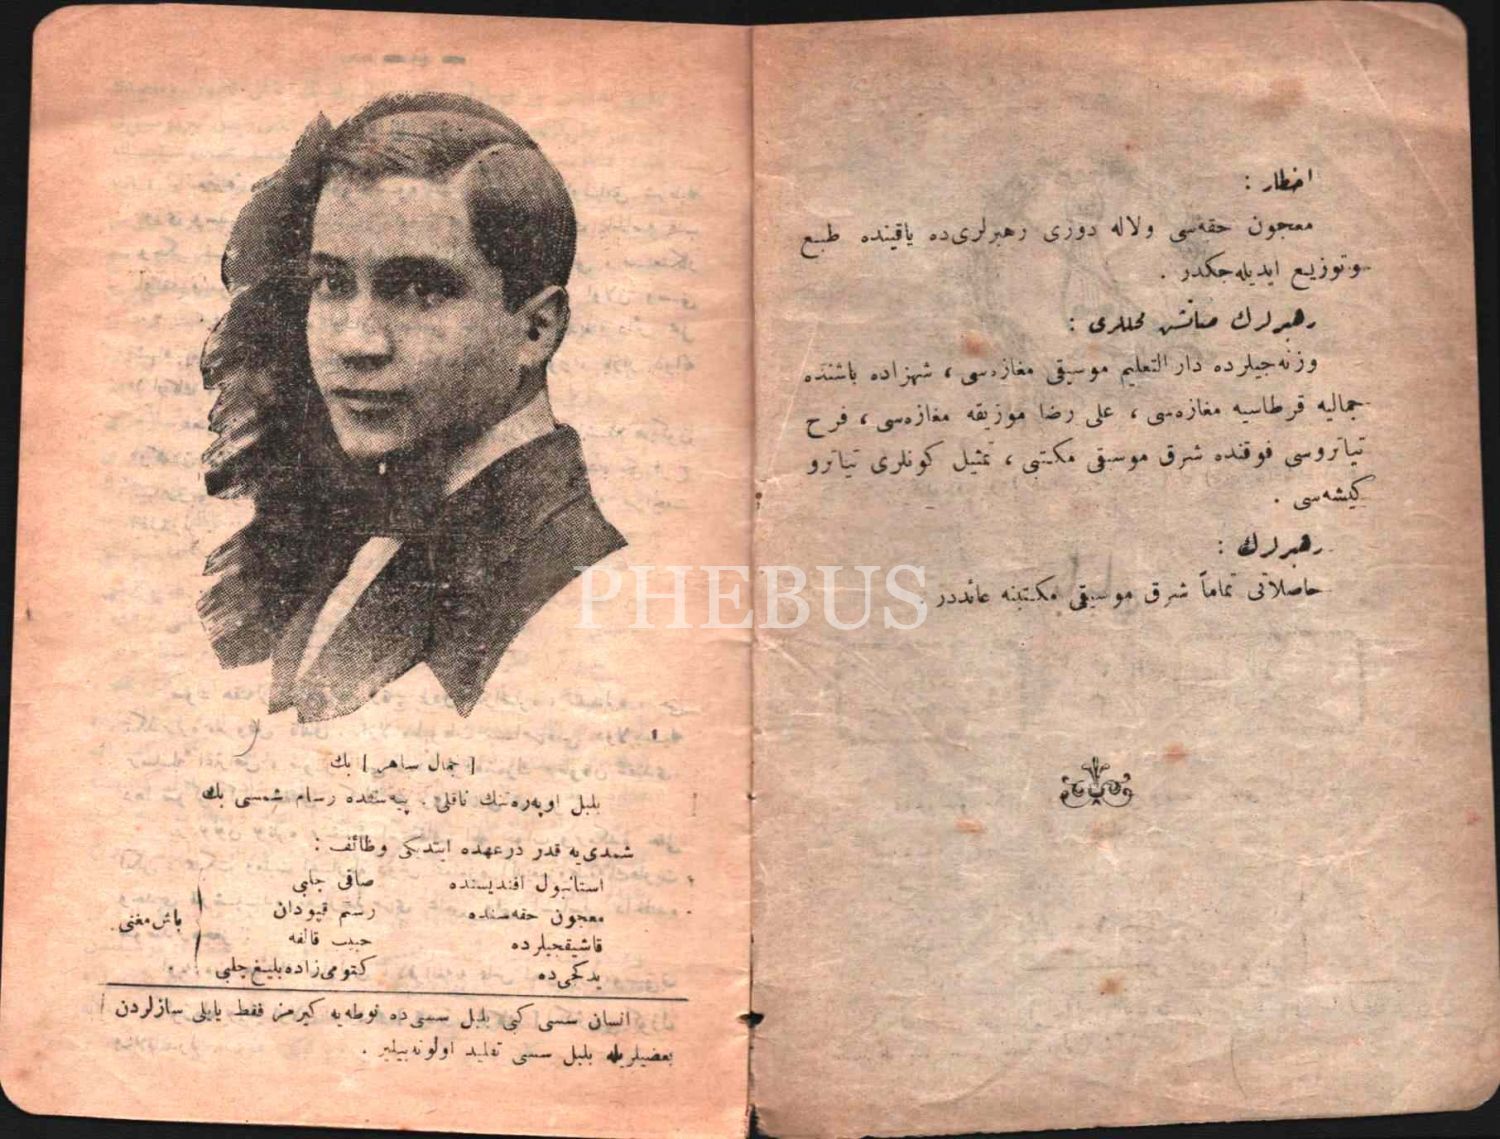 اخطار :
معجون حقه‌سی ولاله دوزی رهبرلری‌ده یاقینده طبع
وتوزیع ایدیله‌جکدر .
رهبرلرك صاتش محللری :
وزنه‌جیلرده دار التعلیم موسیقی مغازه‌سی ، شهزاده باشنده
جمالیه قرطاسیه مغازه‌سی ، علی رضا موزیقه مغازه‌سی ، فرح
تیاتروسی فوقنده شرق موسیقی مکتبی ، تمثیل کونلری تیاترو
کیشه‌سی .
رهبرلرك :
حاصلاتی تماماً شرق موسیقی مکتبنه عائددر
[ جمال ساهر ] بك
بلبل اوپه‌ره‌تنك ناقلی . پیه‌سنده رسام شمسی بك
شمدی‌یه قدر درعهده ایتدیکی وظائف :
استانبول افندیسنده صافی چلبی
معجون حقه‌سنده رستم قپودان
باش مغنی
قاشیقجیلرده حبیب قالفه
یدکجی‌ده کتومی‌زاده بلیغ چلبی
انسان سسی کبی بلبل سسی‌ده نوطه‌یه کیرمز فقط یایلی سازلردن
بعضیلریله بلبل سسی تقلید اولونه‌بیلیر .
PHEBUS